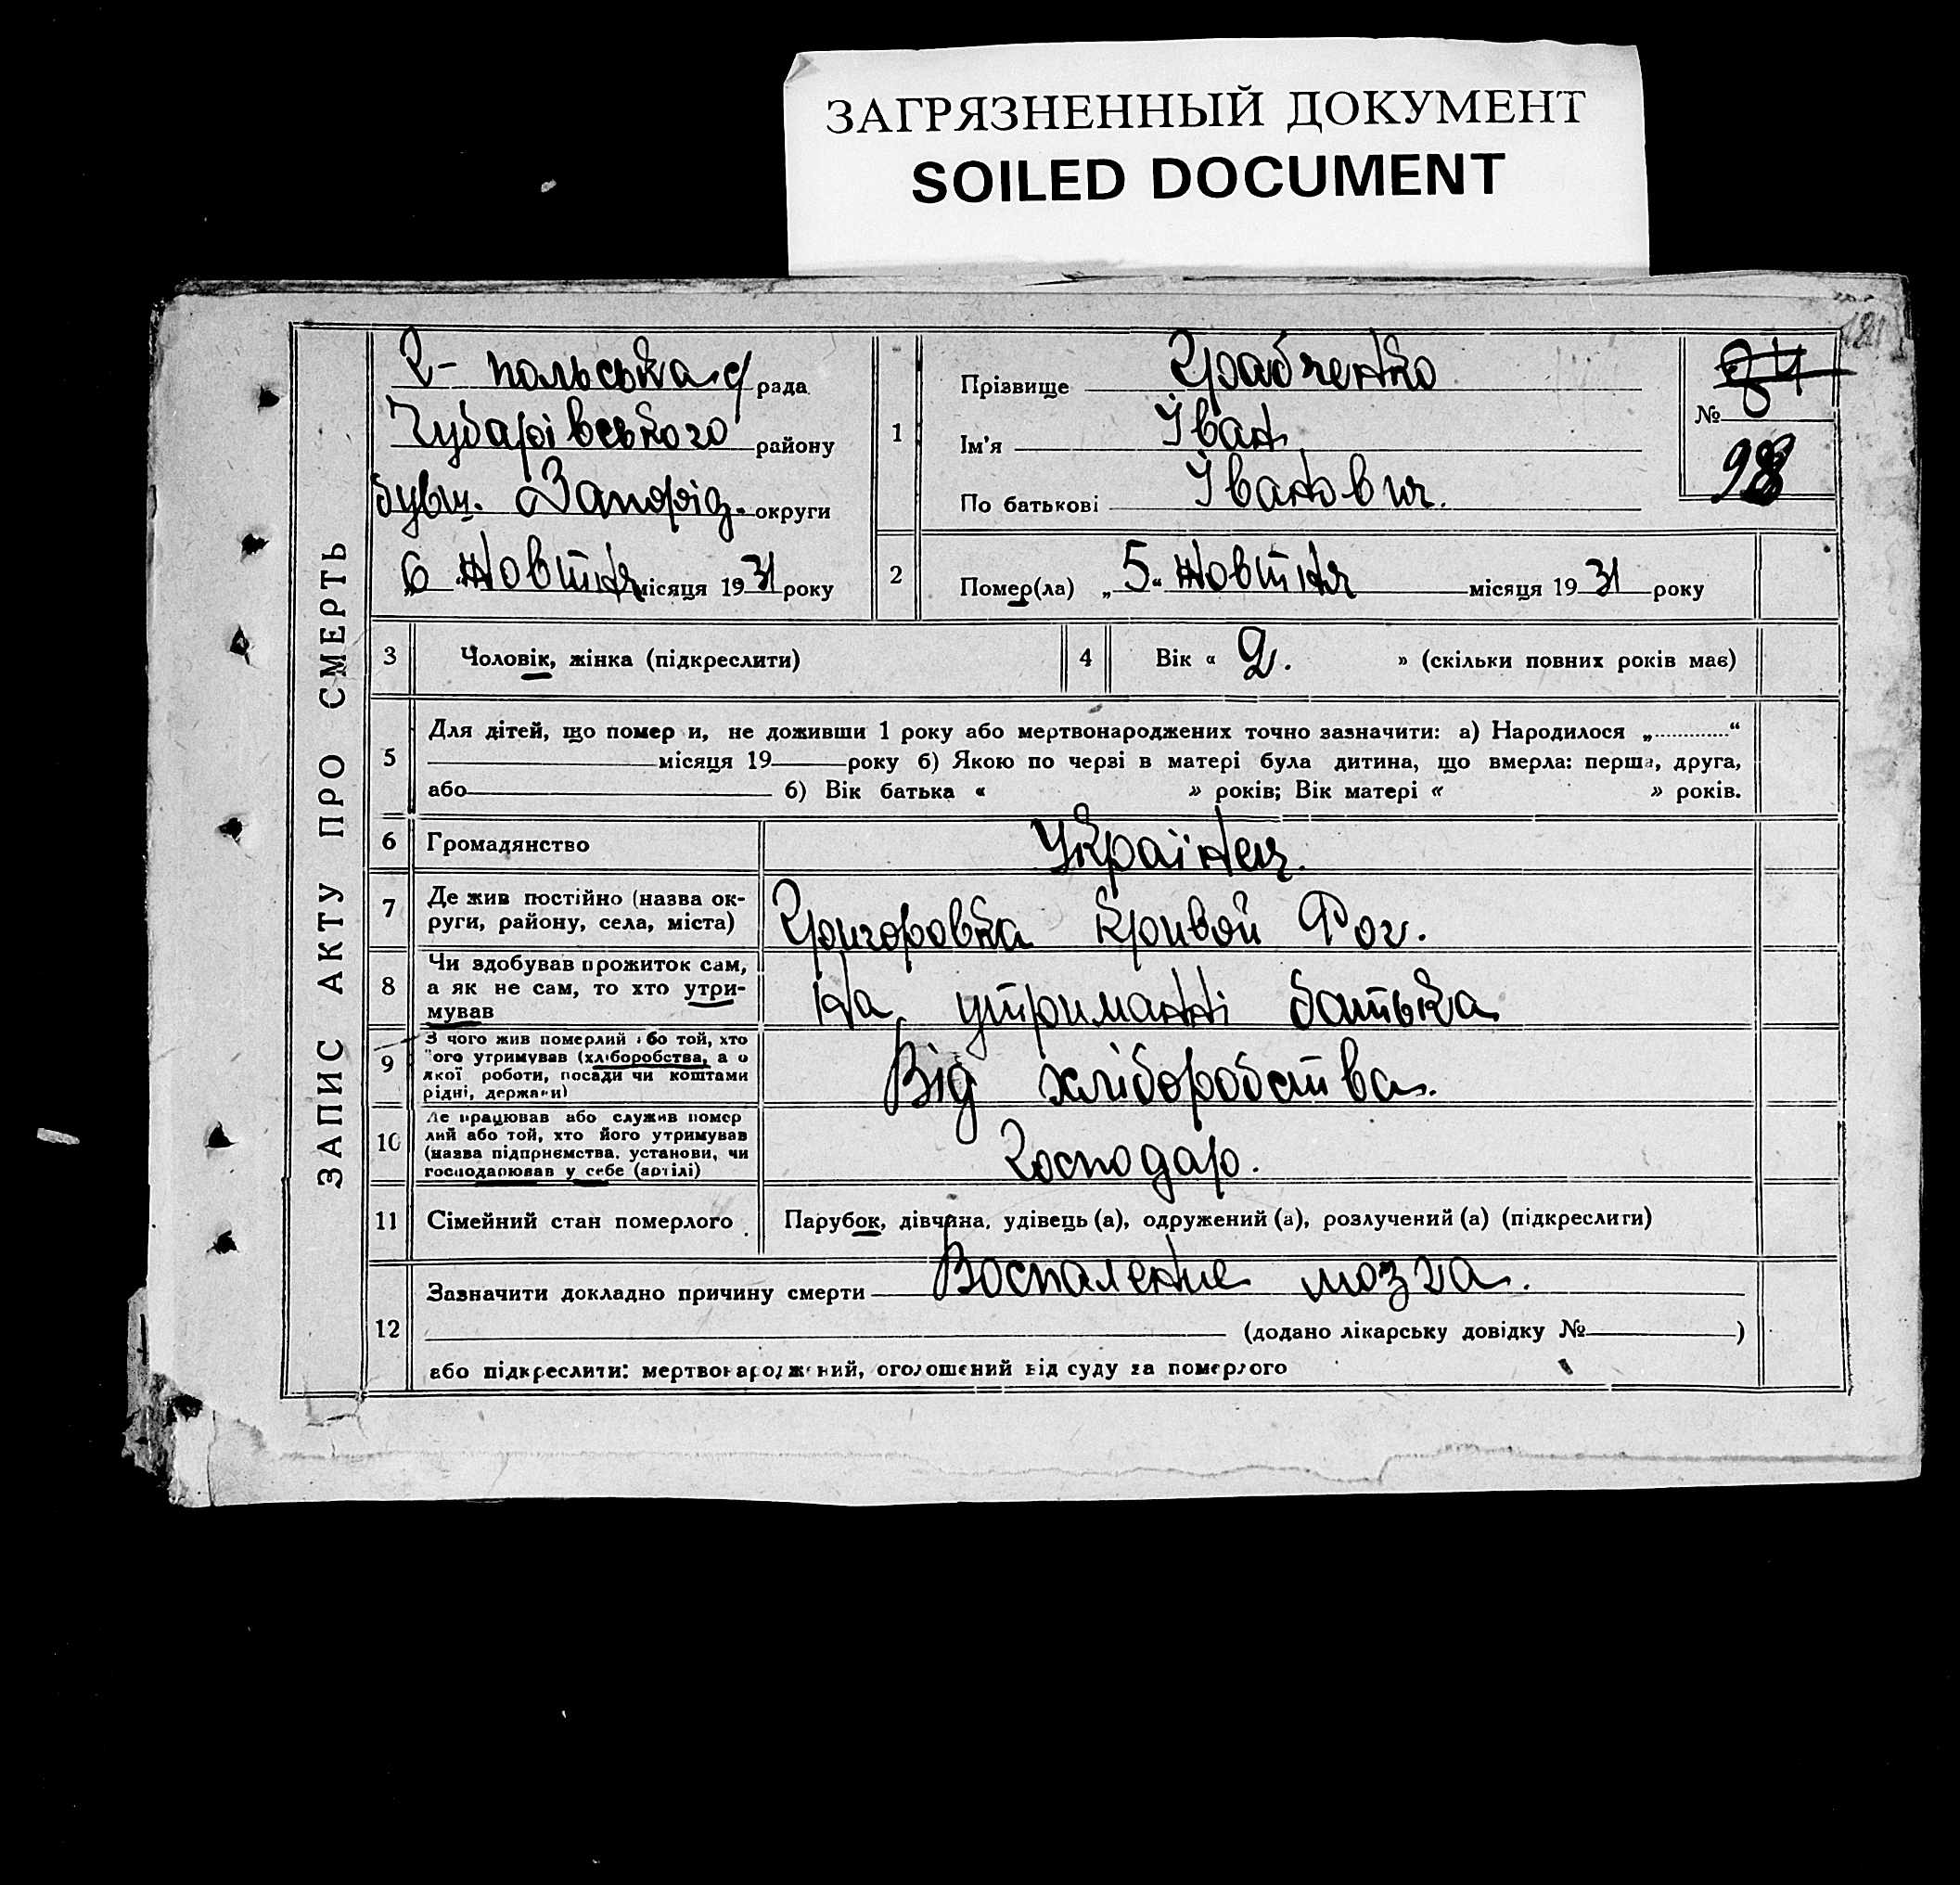 ЗАГРЯЗНЕННЫЙ ДОКУМЕНТ
SOILED DOCUMENT
ЗАПИС АКТУ ПРО СМЕРТЬ
-польська рада
Чубарівського району
бувш. Запоріз. округи
6 Жовтня місяця 1931 року
1
Прізвище Грабченко
Ім'я Іван
По батькові Іванович.
№ 84
98
2
Помер(ла) „5“ жовтня місяця 1931 року
3 Чоловік, жінка (підкреслити)
4 Вік « 2. » (скільки повних років має)
5
Для дітей, що помер и, не доживши 1 року або мертвонароджених точно зазначити: а) Народилося „.............“
місяця 19 року б) Якою по черзі в матері була дитина, що вмерла: перша, друга,
або б) Вік батька « » років; Вік матері « » років.
6 Громадянство Українец.
7 Де жив постійно (назва ок-
руги, району, села, міста) Григоровка Кривой Рог.
8 Чи здобував прожиток сам,
а як не сам, то хто утри-
мував На утриманні батька
9 З чого жив померлий або той, хто
ого утримував (хліборобства, а о
якої роботи, посади чи коштами
рідні, держави) Від хліборобства.
10 Де працював або служив помер
лий або той, хто його утримував
(назва підприємства, установи, чи
господарював у себе (артілі) Господар.
11 Сімейний стан померлого Парубок, дівчина, удівець (а), одружений (а), розлучений (а) (підкреслити)
12 Зазначити докладно причину смерти Воспаление мозга.
(додано лікарську довідку № )
або підкреслити: мертвонароджений, оголошений від суду за померлого